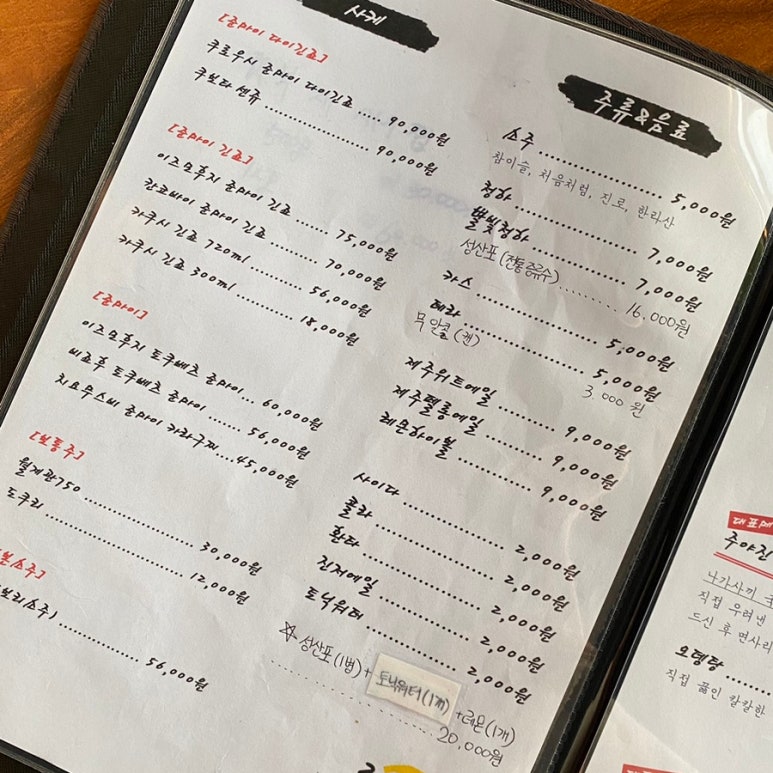 사케
[준마이 다이긴죠]
쿠로우시 준마이 다이긴죠 ..... 90,000원
쿠보타 센쥬 ..................... 90,000원
[준마이 긴죠]
이즈모후지 준마이 긴죠 ....... 75,000원
칸코바이 준마이 긴죠 .......... 70,000원
카쿠시 긴죠 720ml ............ 56,000원
카쿠시 긴죠 300ml ............ 18,000원
[준마이]
이즈모후지 토쿠베츠 준마이... 60,000원
비죠후 토쿠베츠 준마이 ....... 56,000원
치요무스비 준마이 카라구찌...45,000원
[보통주]
월계관750 ..................... 30,000원
도쿠리 ......................... 12,000원
보소주]
보리소주) ................ 56,000원
주류&음료
소주 ...................... 5,000원
참이슬, 처음처럼, 진로, 한라산
청하 ...................... 7,000원
별빛청하 .................. 7,000원
성산포(전통증류수) ......... 16,000원
카스 ...................... 5,000원
테라 ...................... 5,000원
무알콜(캔) 3,000원
제주위트에일 .......... 9,000원
제주펠롱에일 .......... 9,000원
레몬하이볼 ............ 9,000원
사이다 .................. 2,000원
콜라 .................... 2,000원
환타 .................... 2,000원
진저에일 ................ 2,000원
토닉워터 ................ 2,000원
☆ 성산포(1병)+ 토닉워터(1개) +레몬(1개)
.................... 20,000원
대표메
주야진
나가사끼
직접 우려낸
드신 후 면사리
오뎅탕 ..........
직접 끓인 칼칼한